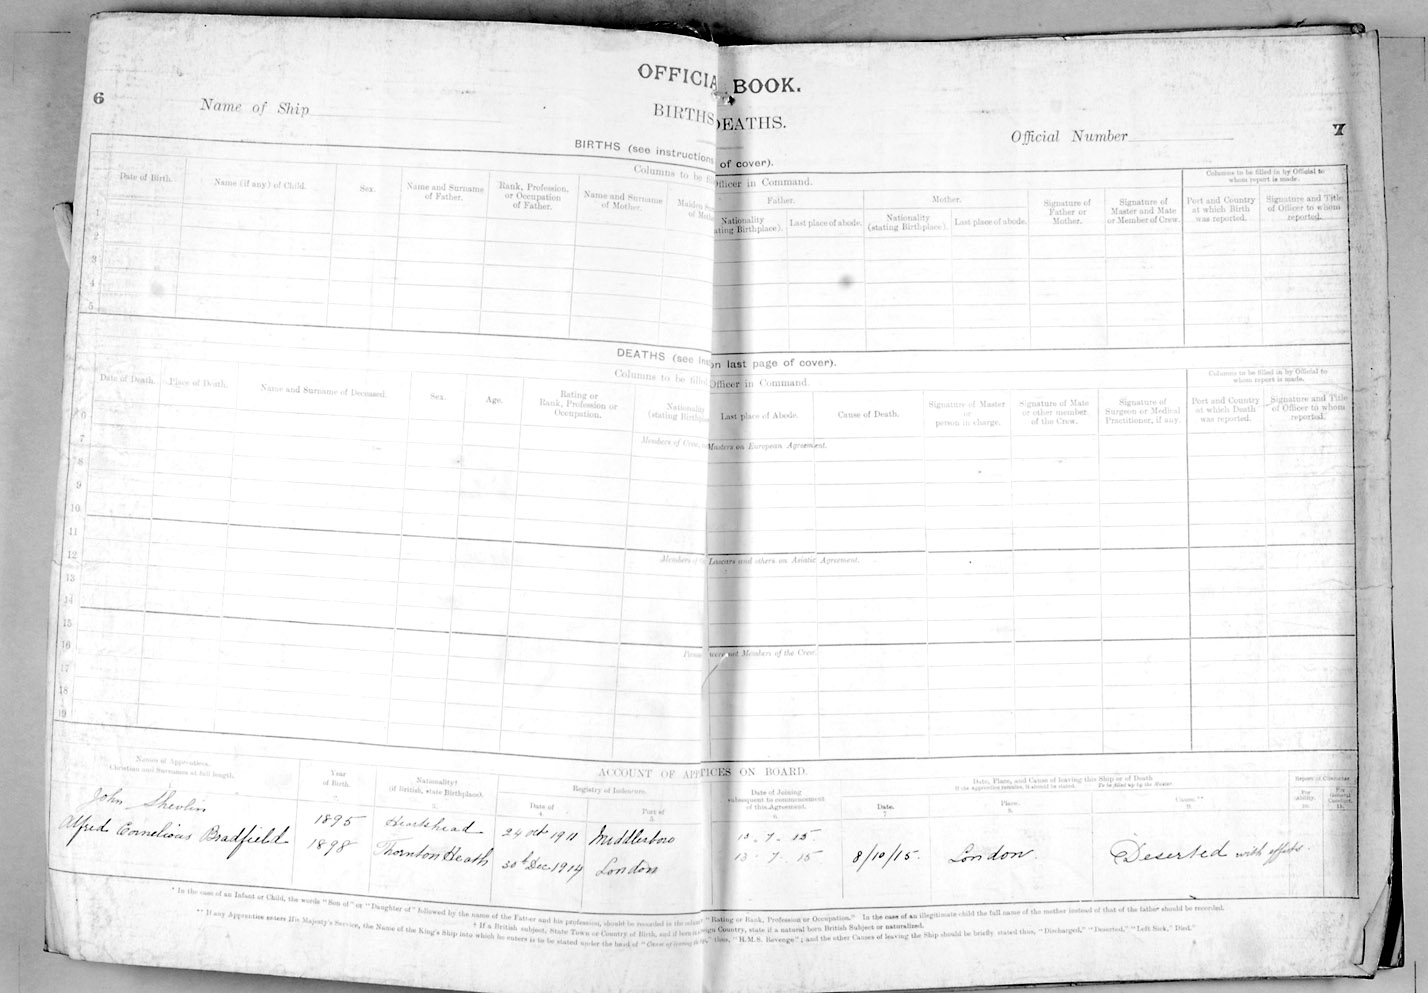 6
OFFICIA BOOK.
Name of Ship
BIRTHS DEATHS.
Official Number
7
BIRTHS (see instructions of cover).
Columns to be fil Officer in Command.
Columns to be filled in by Official to
whom report is made.
Date of Birth.
Name (if any) of Child.
Sex.
Name and Surname
of Father.
Rank, Profession,
or Occupation
of Father.
Name and Surname
of Mother.
Maiden
of Moth
Father.
Nationality
ating Birthplace).
Last place of abode.
Mother.
Nationality
(stating Birthplace).
Last place of abode.
Signature of
Father or
Mother.
Signature of
Master and Mate
or Member of Crew.
Port and Country
at which Birth
was reported.
Signature and Title
of Officer to whom
reported.
1
2
3
4
5
DEATHS (see ins on last page of cover).
Columns to be filled Officer in Command.
Columns to be filled in by Official to
whom report is made.
Date of Death.
Place of Death.
Name and Surname of Deceased.
Sex.
Age.
Rating or
Rank, Profession or
Occupation.
Nationality
(stating Birthpla
Last place of Abode.
Cause of Death.
Signature of Master
or
person in charge.
Signature of Mate
or other member
of the Crew.
Signature of
Surgeon or Medical
Practitioner, if any.
Port and Country
at which Death
was reported.
Signature and Title
of Officer to whom
reported.
Members of Crew, Masters on European Agreement.
6
7
8
9
10
11
Members of Lascars and others on Asiatic Agreement.
12
13
14
15
Perso were not Members of the Crew.
16
17
18
19
ACCOUNT OF APP TICES ON BOARD.
Names of Apprentices.
Christian and Surnames at full length.
Year
of Birth.
Nationality†
(if British, state Birthplace).
3.
Registry of Indenture.
Date of
4.
Port of
5.
Date of Joining
subsequent to commencement
of this Agreement.
6.
Date, Place, and Cause of leaving this Ship or of Death
If the Apprentice remains, it should be stated. To be filled up by the Master.
Date.
7.
Place.
8.
Cause.**
9.
Report of Character
For
Ability.
10.
For
General
Conduct.
11.
John Shevlin 1895 Heartshead 24 Oct 1911 Middlesboro 13. 7. 15.
Alfred Cornelious Bradfield 1898 Thornton Heath 30th Dec. 1914 London 13. 7. 15 8/10/15. London. Deserted with effects.
* In the case of an Infant or Child, the words "Son of" or "Daughter of" followed by the name of the Father and his profession, should be recorded in the column "Rating or Rank, Profession or Occupation." In the case of an illegitimate child the full name of the mother instead of that of the father should be recorded.
† If a British subject, State Town or Country of Birth, and if born in a foreign Country, state if a natural born British Subject or naturalized.
** If any Apprentice enters His Majesty's Service, the Name of the King's Ship into which he enters is to be stated under the head of "Cause of leaving thus, "H.M.S. Revenge"; and the other Causes of leaving the Ship should be briefly stated thus, "Discharged," "Deserted," "Left Sick," Died."